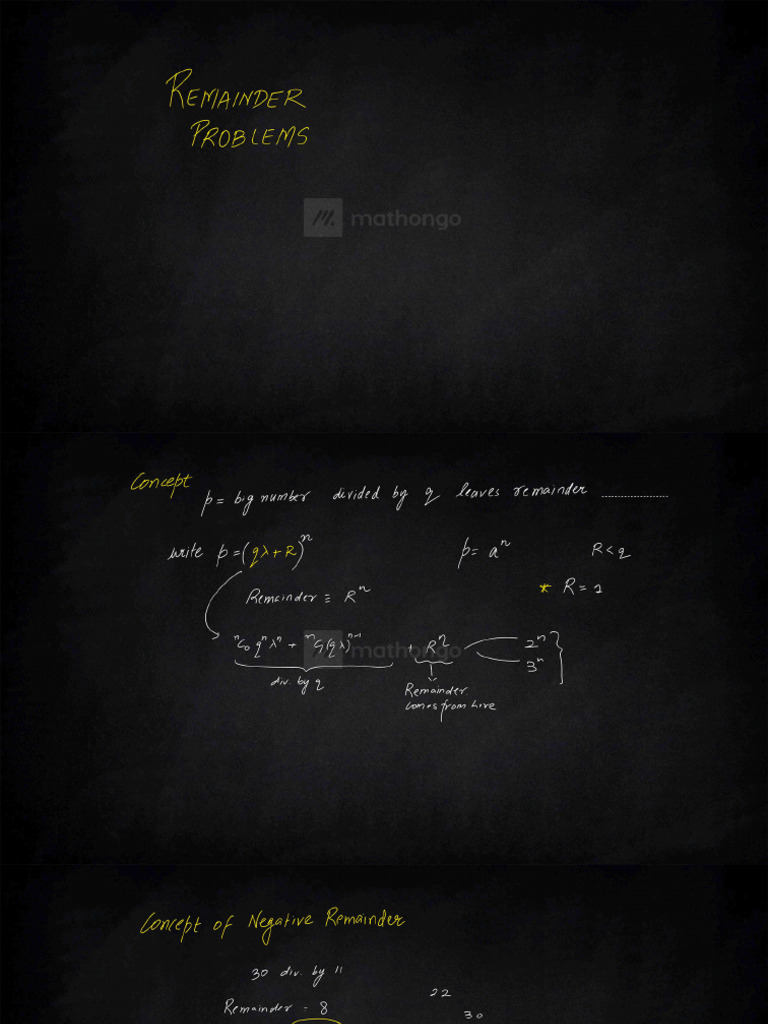 REMAINDER
PROBLEMS
mathongo
Concept
p = big number divided by q leaves remainder ..................
write p = (qλ + R)ⁿ
p = aⁿ
R < q
Remainder ≡ Rⁿ
* R = 1
ⁿC₀ qⁿ λⁿ + ⁿC₁ (qλ)ⁿ⁻¹ + Rⁿ
2ⁿ
3ⁿ
mathongo
div. by q
Remainder
comes from here
Concept of Negative Remainder
30 div. by 11
22
Remainder = 8
30